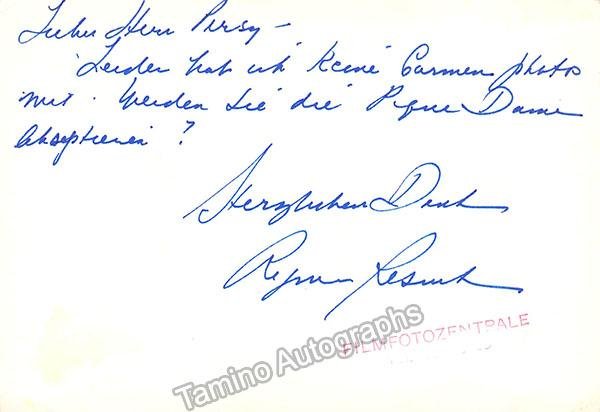 Lieber Herr Persy –
Leider hab ich keine Carmen photos
mit. Werden Sie die Pique Dame
akzeptieren?
Herzlichen Dank
Regina Resnik
FILMFOTOZENTRALE
Tamino Autographs